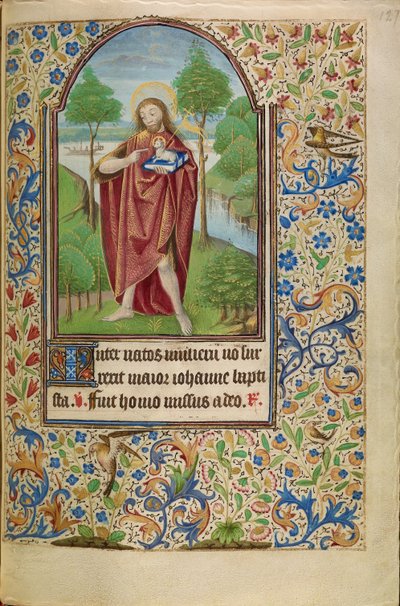 127
Inter natos mulieru no sur
rexit maior iohanne bapti
sta. V. ffuit homo missus a deo. R.